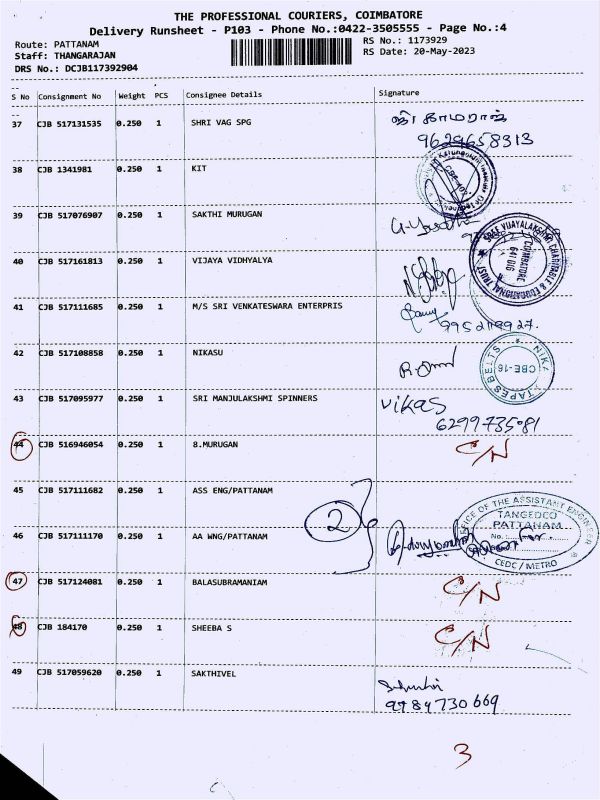 THE PROFESSIONAL COURIERS, COIMBATORE
Delivery Runsheet - P103 - Phone No.:0422-3505555 - Page No.:4
Route: PATTANAM
RS No.: 1173929
Staff: THANGARAJAN
RS Date: 20-May-2023
DRS No.: DCJB117392904
S No Consignment No Weight PCS Consignee Details Signature
37 CJB 517131535 0.250 1 SHRI VAG SPG ஜி காமராஜ்
9629658313
38 CJB 1341981 0.250 1 KIT
39 CJB 517076907 0.250 1 SAKTHI MURUGAN
SREE VIJAYALAKSHMI CHARITABLE & EDUCATIONAL TRUST
COIMBATORE
641 016
40 CJB 517161813 0.250 1 VIJAYA VIDHYALYA
41 CJB 517111685 0.250 1 M/S SRI VENKATESWARA ENTERPRIS
42 CJB 517108858 0.250 1 NIKASU
NIKA TAPES BELTS
CBE-16
43 CJB 517095977 0.250 1 SRI MANJULAKSHMI SPINNERS vikas
6299735081
44 CJB 516946054 0.250 1 8.MURUGAN C/N
45 CJB 517111682 0.250 1 ASS ENG/PATTANAM
2
OFFICE OF THE ASSISTANT ENGINEER
TANGEDCO
PATTANAM
No.
CEDC / METRO
46 CJB 517111170 0.250 1 AA WNG/PATTANAM
47 CJB 517124081 0.250 1 BALASUBRAMANIAM C/N
48 CJB 184170 0.250 1 SHEEBA S C/N
49 CJB 517059620 0.250 1 SAKTHIVEL
9784730669
3